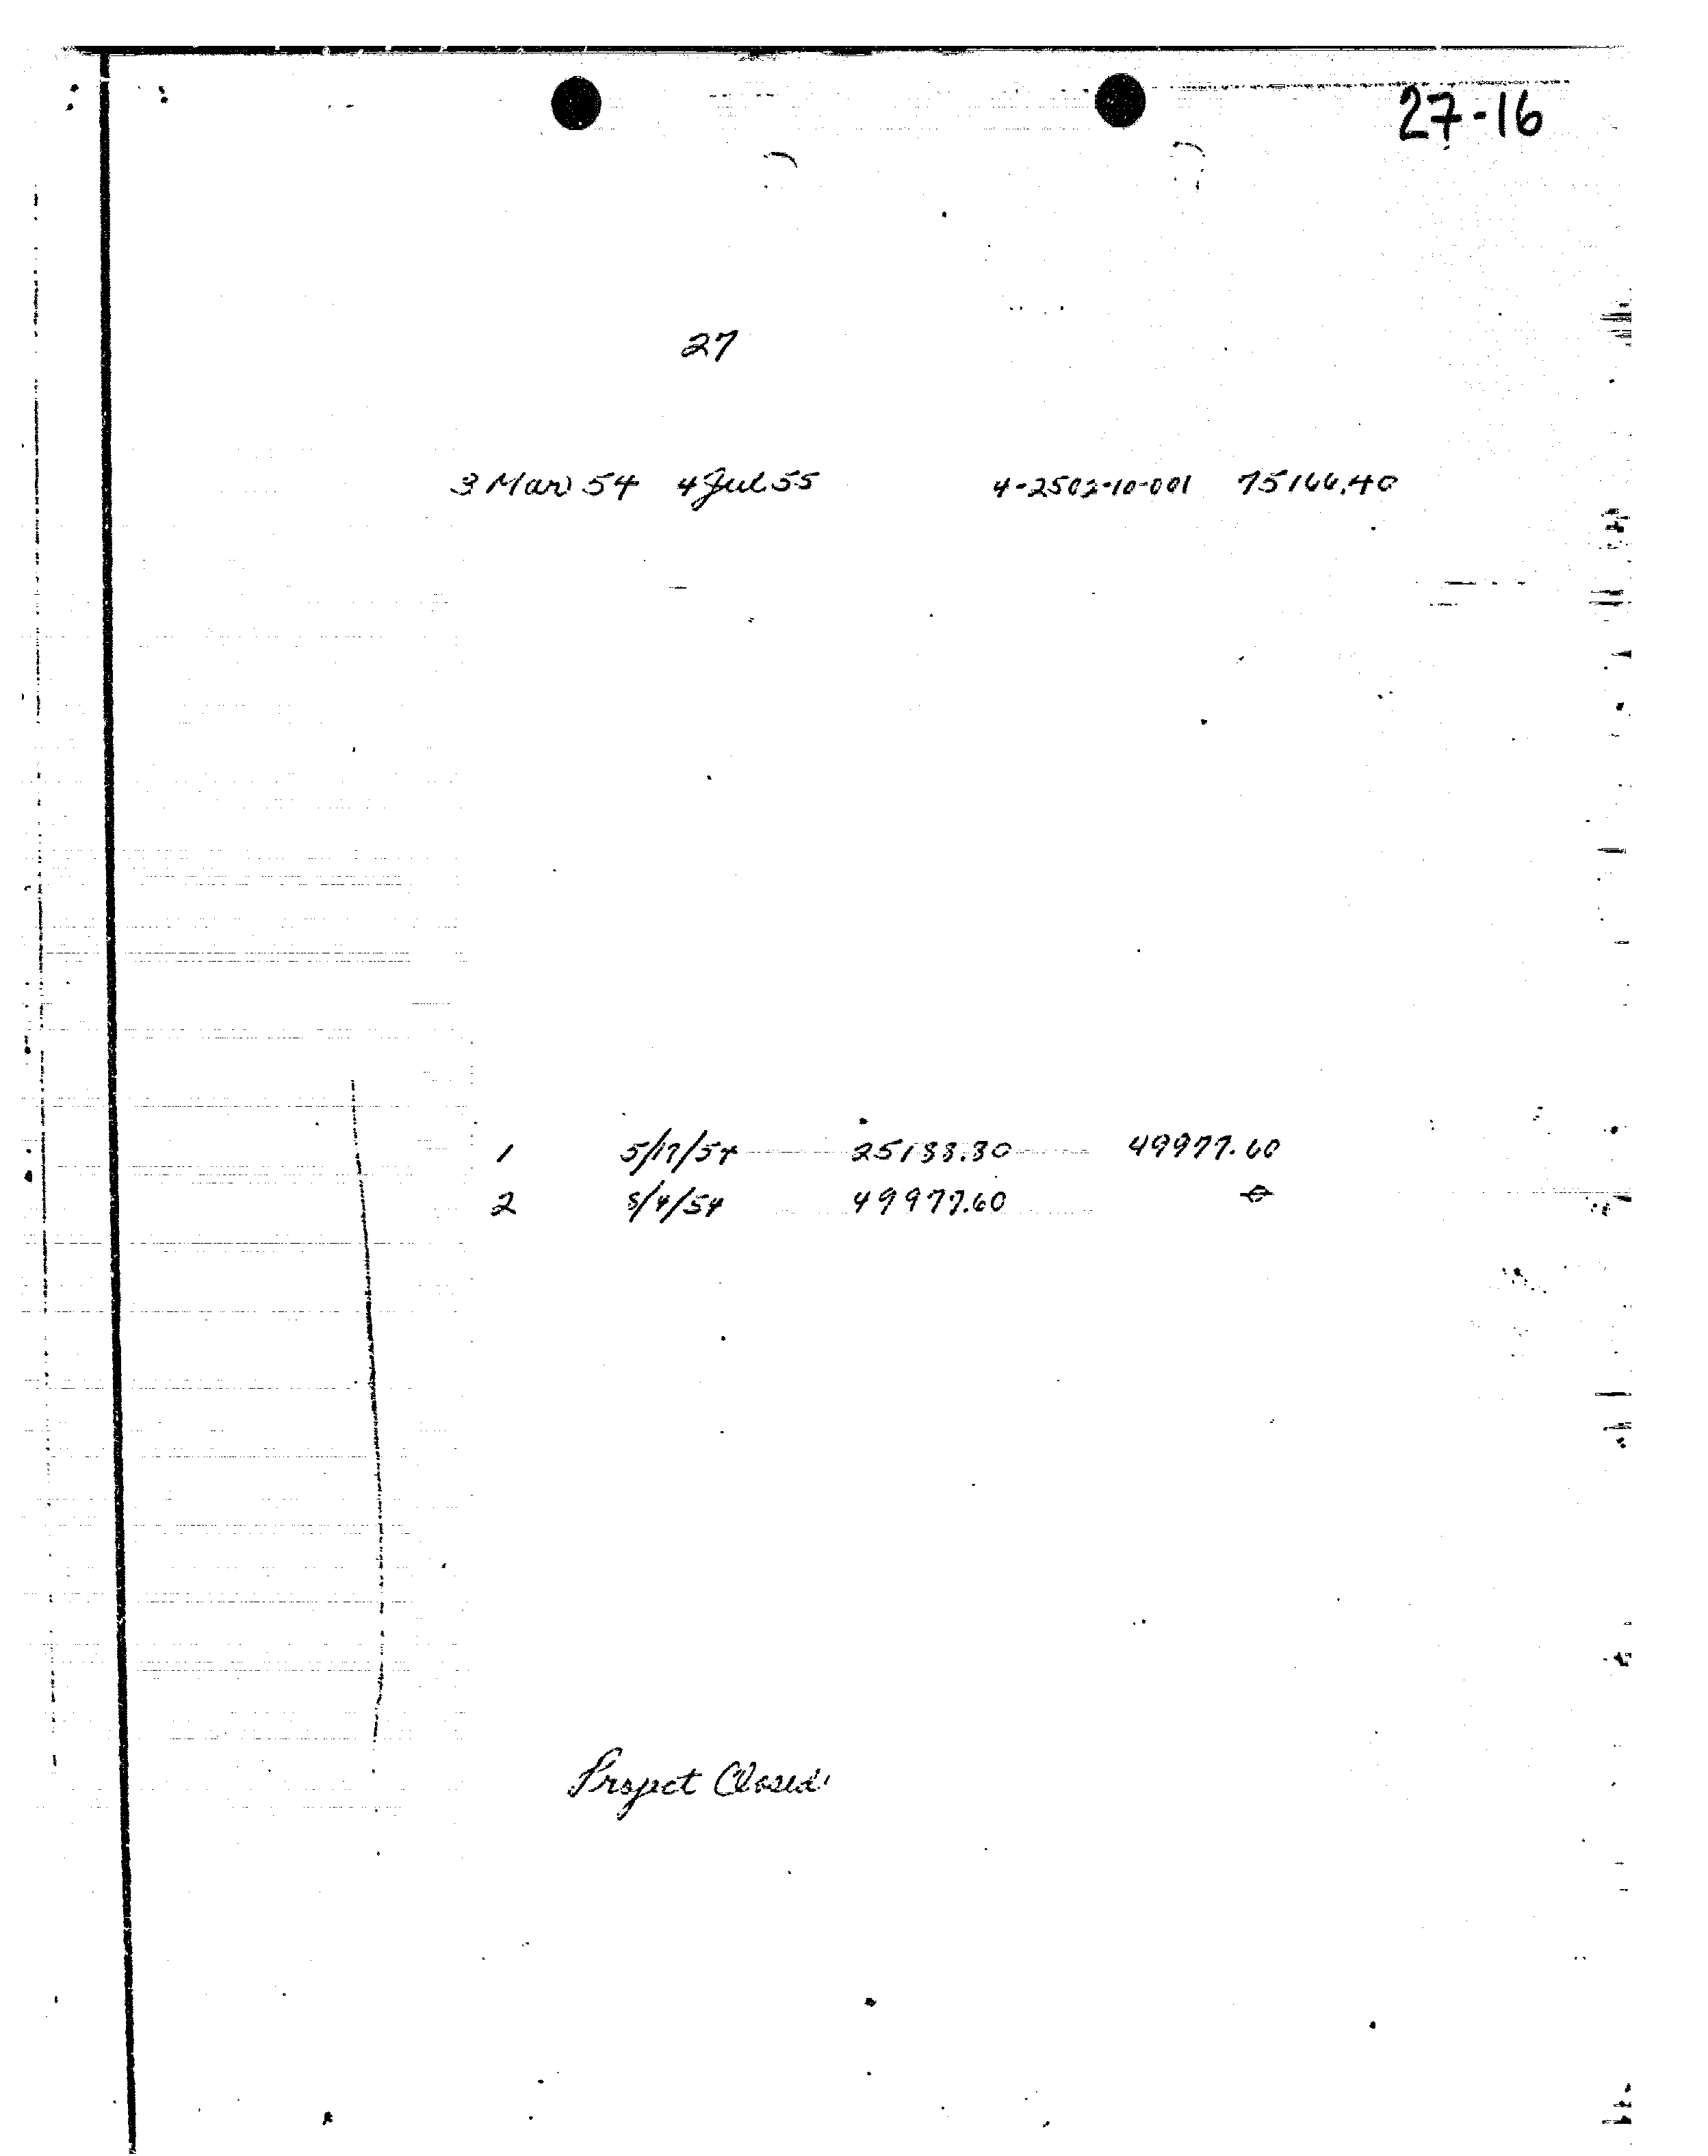 27-16
27
3 Mar 54 4 Jul 55 4-2502-10-001 75166.40
1 5/17/54 25188.80 49977.60
2 8/4/54 49977.60 0
Project Closed